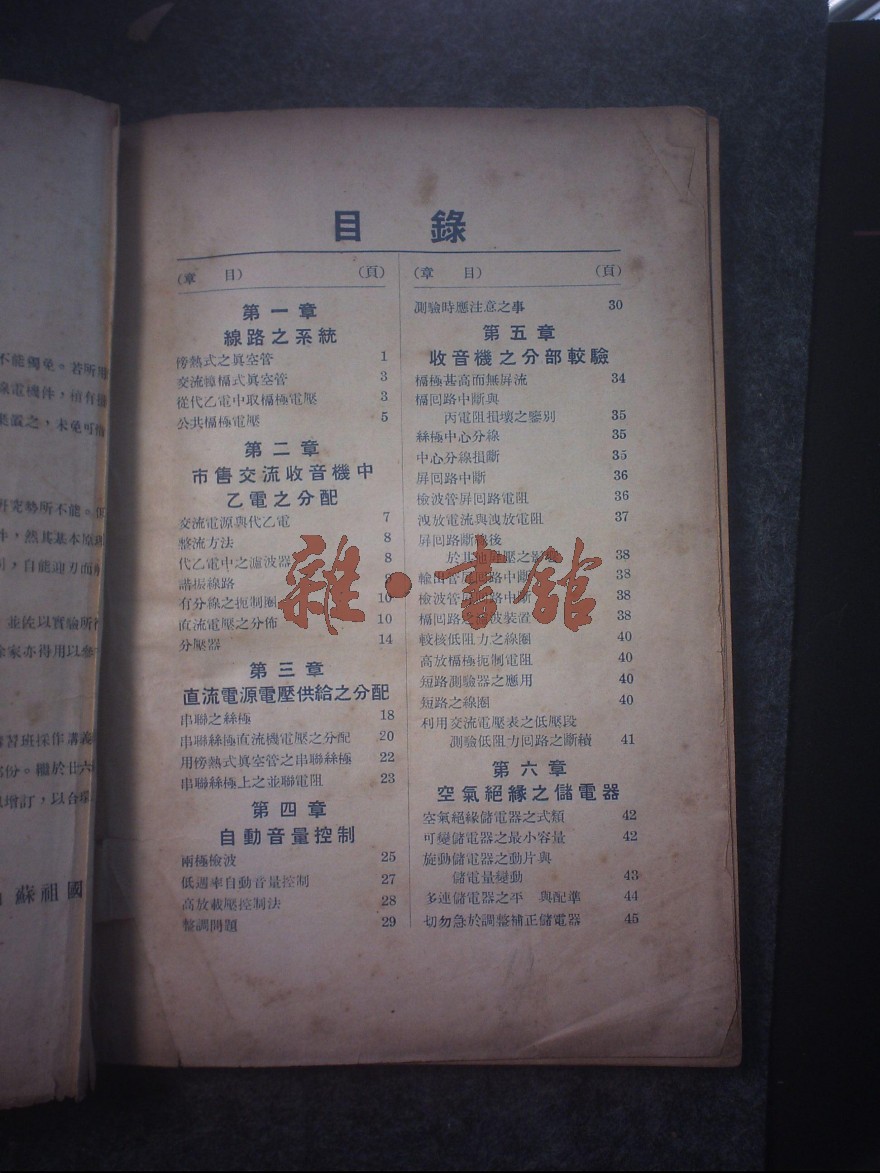 目錄
(章 目) (頁)
第一章
線路之系統
傍熱式之眞空管 1
交流幛柵式眞空管 3
從代乙電中取柵極電壓 3
公共柵極電壓 5
第二章
市售交流收音機中
乙電之分配
交流電源與代乙電 7
整流方法 8
代乙電中之濾波器 8
諧振線路
有分線之扼制圈 10
直流電壓之分佈 10
分壓器 14
第三章
直流電源電壓供給之分配
串聯之絲極 18
串聯絲極直流機電壓之分配 20
用傍熱式眞空管之串聯絲極 22
串聯絲極上之並聯電阻 23
第四章
自動音量控制
兩極檢波 25
低週率自動音量控制 27
高放載壓控制法 28
整調問題 29
(章 目) (頁)
測驗時應注意之事 30
第五章
收音機之分部較驗
柵極甚高而無屏流 34
柵回路中斷與
丙電阻損壞之鑒別 35
絲極中心分線 35
中心分線損斷 35
屏回路中斷 36
檢波管屏回路電阻 36
洩放電流與洩放電阻 37
屏回路斷 後
於其他屏壓之影 38
輸出管屏回路中斷 38
檢波管屏回路中斷 38
柵回路之 波裝置 38
較核低阻力之線圈 40
高放柵極扼制電阻 40
短路測驗器之應用 40
短路之線圈 40
利用交流電壓表之低壓段
測驗低阻力回路之斷續 41
第六章
空氣絕緣之儲電器
空氣絕緣儲電器之式類 42
可變儲電器之最小容量 42
旋動儲電器之動片與
儲電量變動 43
多連儲電器之平 與配準 44
切勿急於調整補正儲電器 45
不能獨免。若所用
線電機件，植有損
棄置之，未免可惜
班究勢所不能。但
件，然其基本原理
明，自能迎刃而解
並佐以實驗所得
徐家亦得用以參考
習班採作講義
部份。繼於廿六
增訂，以合環
蘇祖國
雜·書館